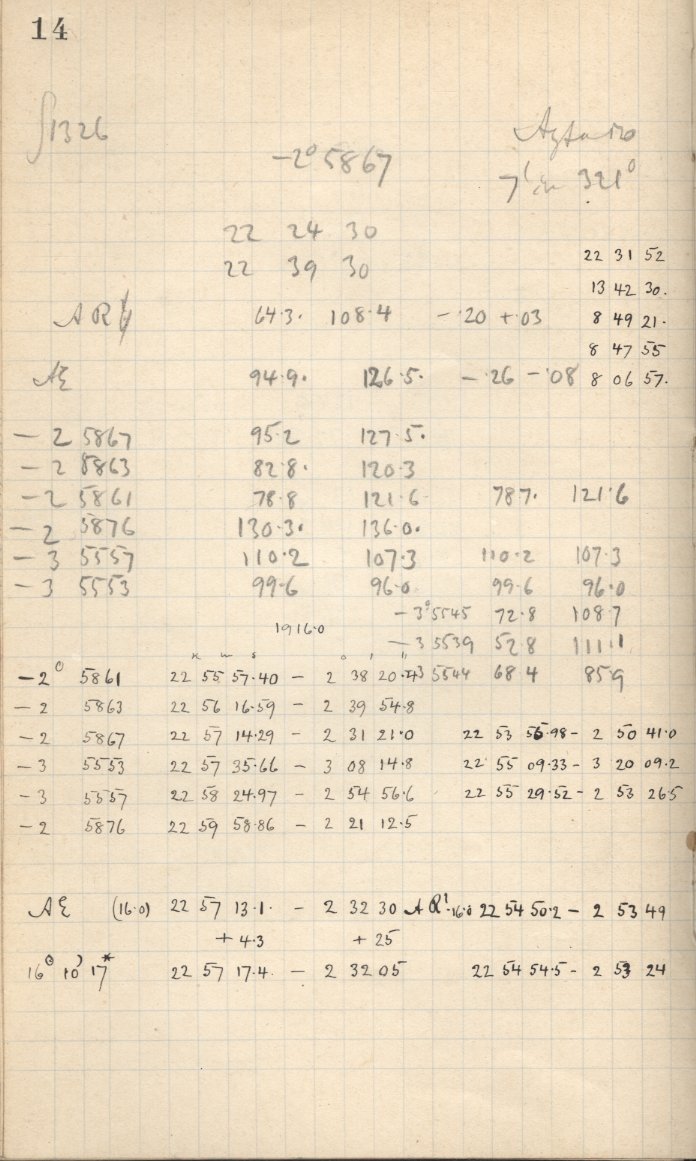 14
∫1326
-2° 5867
7' 321°
22 24 30
22 39 30
22 31 52
13 42 30.
AR 64.3. 108.4 - .20 + .03 8 49 21.
8 47 55
AE 94.9. 126.5. - .26 - .08 8 06 57.
- 2 5867 95.2 127.5.
- 2 5863 82.8. 120.3
- 2 5861 78.8 121.6 78.7. 121.6
- 2 5876 130.3. 136.0.
- 3 5557 110.2 107.3 110.2 107.3
- 3 5553 99.6 96.0 99.6 96.0
- 3° 5545 72.8 108.7
1916.0
- 3 5539 52.8 111.1
h m s ° ' "
- 2° 5861 22 55 57.40 - 2 38 20. -3 5544 68.4 85.9
- 2 5863 22 56 16.59 - 2 39 54.8
- 2 5867 22 57 14.29 - 2 31 21.0 22 53 56.98 - 2 50 41.0
- 3 5553 22 57 35.66 - 3 08 14.8 22 55 09.33 - 3 20 09.2
- 3 5557 22 58 24.97 - 2 54 56.6 22 55 29.52 - 2 53 26.5
- 2 5876 22 59 58.86 - 2 21 12.5
AE (16.0) 22 57 13.1. - 2 32 30 AR' 16.0 22 54 50.2 - 2 53 49
+ 4.3 + 25
16° 10' 17* 22 57 17.4. - 2 32 05 22 54 54.5 - 2 53 24